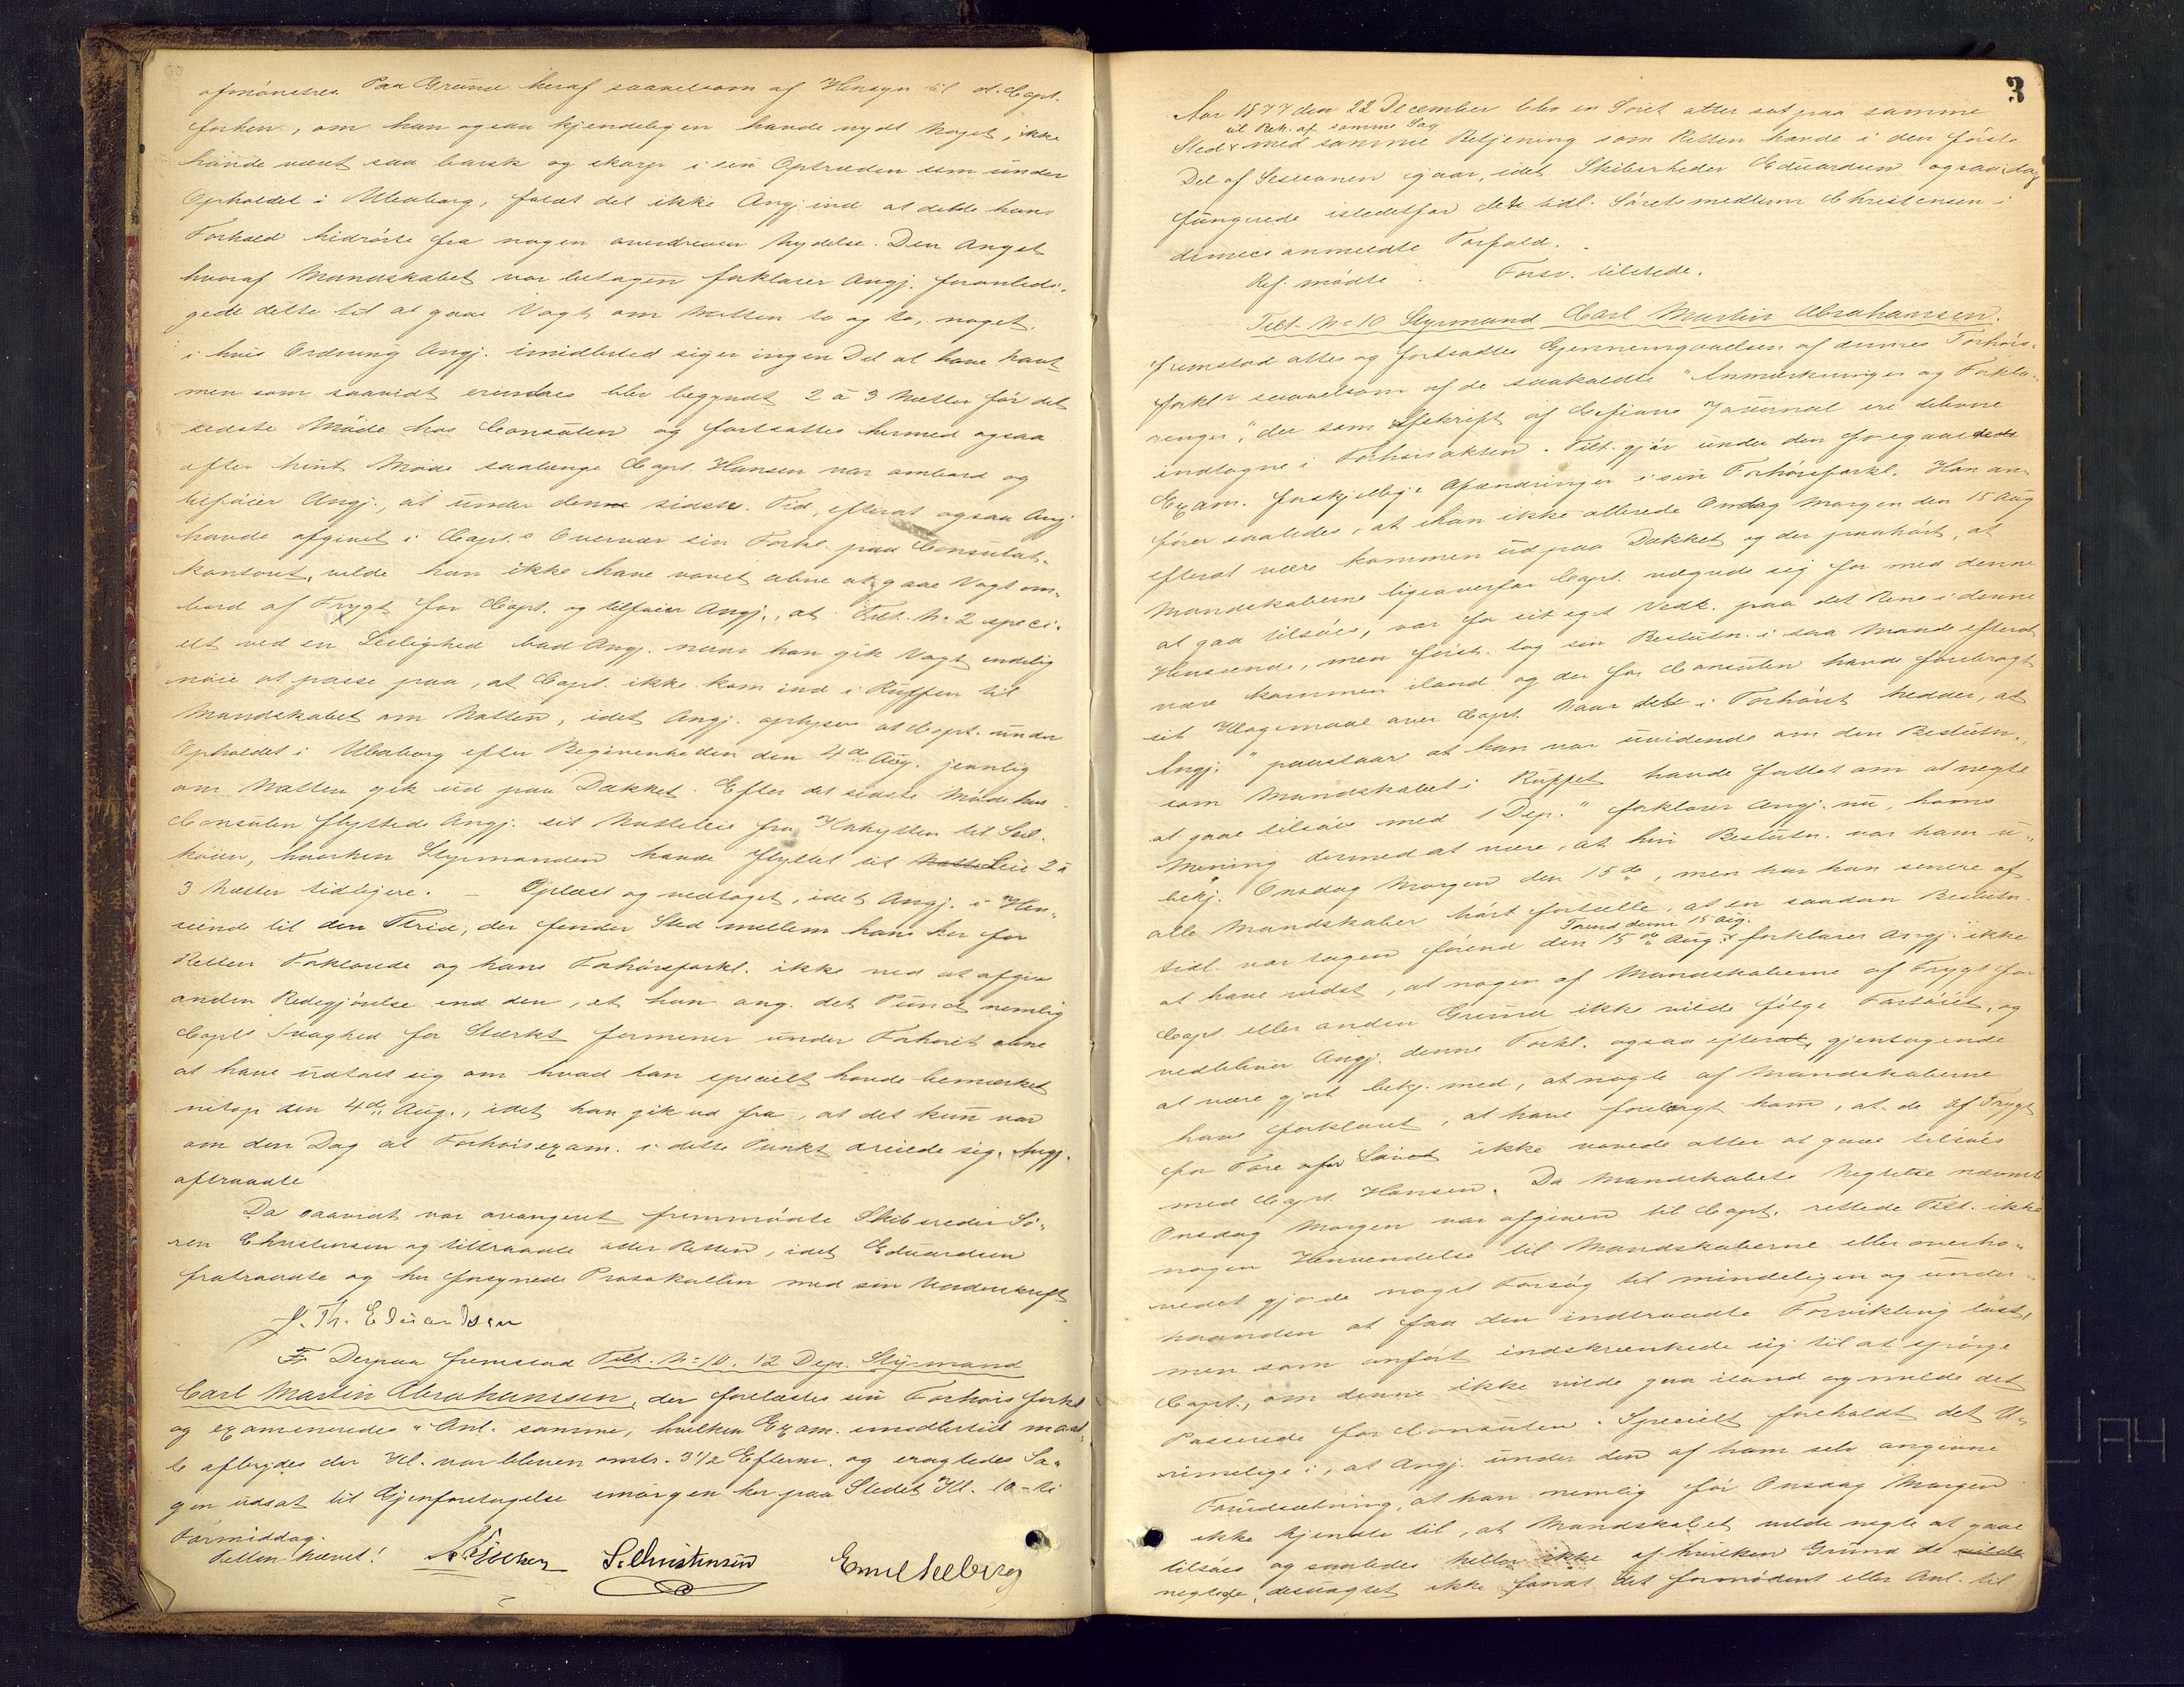 afmønstres. Paa Grund heraf saavelsom af Hensyn til at Capt.
forhen, om han ogsaa kjendeligen havde nydt Noget, ikke
havde været saa barsk og skarp i sin Optræden som under
Opholdet i Uleaborg, faldt det ikke Angj. ind at dette hans
Forhold hidrørte fra nogen overdreven Nydelse. Den Angst
hvoraf Mandskabet var betagen forklarer Angj. foranledi-
gede dette til at gaae Vagt om Natten to og to, noget
i hvis Ordning Angj. imidlertid siger ingen Del at have havt
men som saavidt erindres blev begyndt 2 à 3 Nætter før det
sidste Møde hos Consulen og fortsattes hermed ogsaa
efter hint Møde saalænge Capt. Hansen var ombord og
tilføier Angj., at under denne sidste Tid, efterat ogsaa Angj
havde afgivet i Capt.s Overvær sin Forkl. paa Consulat-
kontoret, vilde han ikke have vovet alene at gaae Vagt om-
bord af Frygt for Capt. og tilføier Angj., at Tilt. No 2 speci-
elt ved en Leilighed bad Angj. naar han gik Vagt endelig
nøie at passe paa, at Capt. ikke kom ind i Ruffen til
Mandskabet om Natten, idet Angj. oplyser at Capt. under
Opholdet i Uleaborg efter Begivenheden den 4de Aug. jevnlig
om Natten gik ud paa Dækket. Efter det sidste Møde hos
Consulen flyttede Angj. sit Natteleie fra Kahytten til Seil-
køien, hvorhen Styrmanden havde flyttet sit Natte Leie 2 à
3 Nætter tidligere. – Oplæst og vedtaget, idet Angj. i Hen-
seende til den Strid, der finder Sted mellem hans her for
Retten Forklarede og hans Forhørsforkl. ikke ved at afgive
anden Redegjørelse end den, at han ang. det Punct nemlig
Capts Svaghed for Stærkt formener under Forhøret alene
at have udtalt sig om hvad han specielt havde bemærket
netop den 4de Aug., idet han gik ud fra, at det kun var
om den Dag at Forhørsexam. i dette Punkt dreiede sig. Angj.
aftraadte
Da saavidt var avangeret fremmødte Skibsreder Sø-
ren Christensen og tiltraadte atter Retten, idet Eduardsen
fratraadte og her forsynede Protokollen med sin Underskrift
J. Th. Eduardsen
Derpaa fremstod Tilt. No 10. 12 Dep. Styrmand
Carl Martin Abrahamsen, der forelæstes sin Forhørsforkl
og examineredes i Anl. samme, hvilken Exam. imidlertid maat-
te afbrydes der Kl. var bleven omtr. 3 1/2 Efterm. og eragtedes Sa-
gen udsat til Gjenforetagelse imorgen her paa Stedet Kl. 10 – ti
Formiddag.
Retten hævet! S. Christensen Emil Selberg
3
Aar 1877 den 22 December blev en Søret atter sat paa samme
til Beh. af samme Sag
Sted med samme Betjening som Retten havde i den første
Del af Sessionen igaar, idet Skibsrheder Eduardsen ogsaa idag
fungerede istedetfor det tidl. Søretsmedlem Christensen i
dennes anmeldte Forfald.
Ref. mødte. Forsv. tilstede.
Tilt. No 10 Styrmand Carl Martin Abrahamsen.
fremstod atter og fortsattes Gjennemgaaelsen af dennes Forhørs-
forkl. saavelsom af de saakaldte "Anmærkninger og Forkla-
ringer", der som Afskrift af Gefions Journal ere blevne
indtagne i Forhørsakten. Tilt. gjør under den foregaaede
Exam. forskjellige Afændringer i sin Forhørsforkl. Han an-
fører saaledes, at han ikke allerede Onsdag Morgen den 15 Aug
efterat være kommen ud paa Dækket og der paahørt, at
Mandskaberne ligeoverfor Capt. vægrede sig for med denne
at gaa tilsøes, var for sit eget Vedk. paa det Rene i denne
Henseende, men først tog sin Beslutn. i saa Maade efterat
være kommen iland og der for Consulen havde forebragt
sit Klagemaal over Capt. Naar det i Forhøret hedder, at
Angj. "paastaar at han var uvidende om den Beslutn.,
som Mandskabet i Ruffet havde fattet om at negte
at gaae tilsøes med 1 Dep." forklarer Angj. nu, hans
Mening dermed at være, at hin Beslutn. var ham u-
bekj. Onsdag Morgen den 15de, men har han senere af
alle Mandskaber hørt fortælle, at en saadan Beslutn.
Forend denne 15 Aug.
tidl. var tagen førend den 15de Aug. forklarer Angj. ikke
at have vidst, at nogen af Mandskaberne af Frygt for
Capt. eller anden Grund ikke vilde følge Fartøiet, og
vedbliver Angj. denne Forkl. ogsaa efterat gjentagende
at være gjort bekj. med, at nogle af Mandskaberne
have forklaret, at have forebragt ham, at de af Frygt
for Fare for Livet ikke vovede atter at gaae tilsøes
med Capt. Hansen. Da Mandskabets Negtelse nævnte
Onsdag Morgen var afgiven til Capt. rettede Tilt. ikke
nogen Henvendelse til Mandskaberne eller overho-
vedet gjorde noget Forsøg til mindeligen og under-
haanden at faa den indtraadte Forvikling løst,
men som anført indskrænkede sig til at spørge
Capt., om denne ikke vilde gaa iland og melde det
Passerede for Consulen. Specielt foreholdt det U-
rimelige i, at Angj. under den af ham selv angivne
Forudsætning, at han nemlig før Onsdag Morgen
ikke kjendte til, at Mandskabet vilde negte at gaae
tilsøes og saaledes heller ikke af hvilken Grund de vilde
negtede, desuagtet ikke fandt det fornødent eller Anl. til